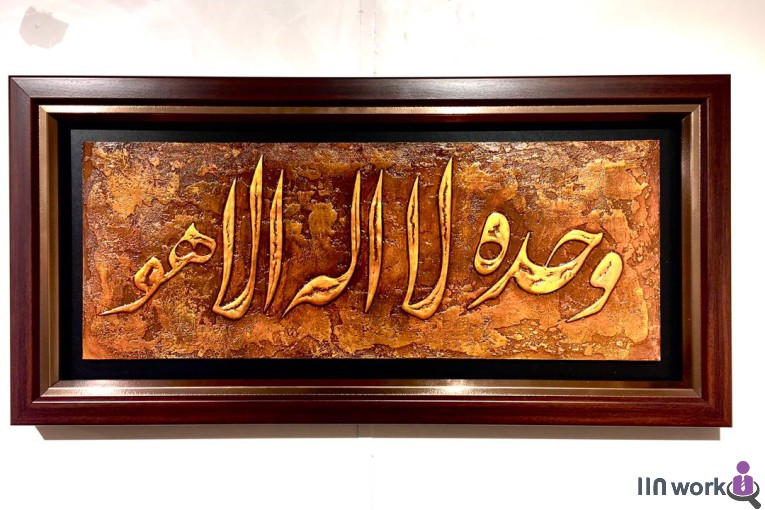 وحده لا اله الا هو
IIN work